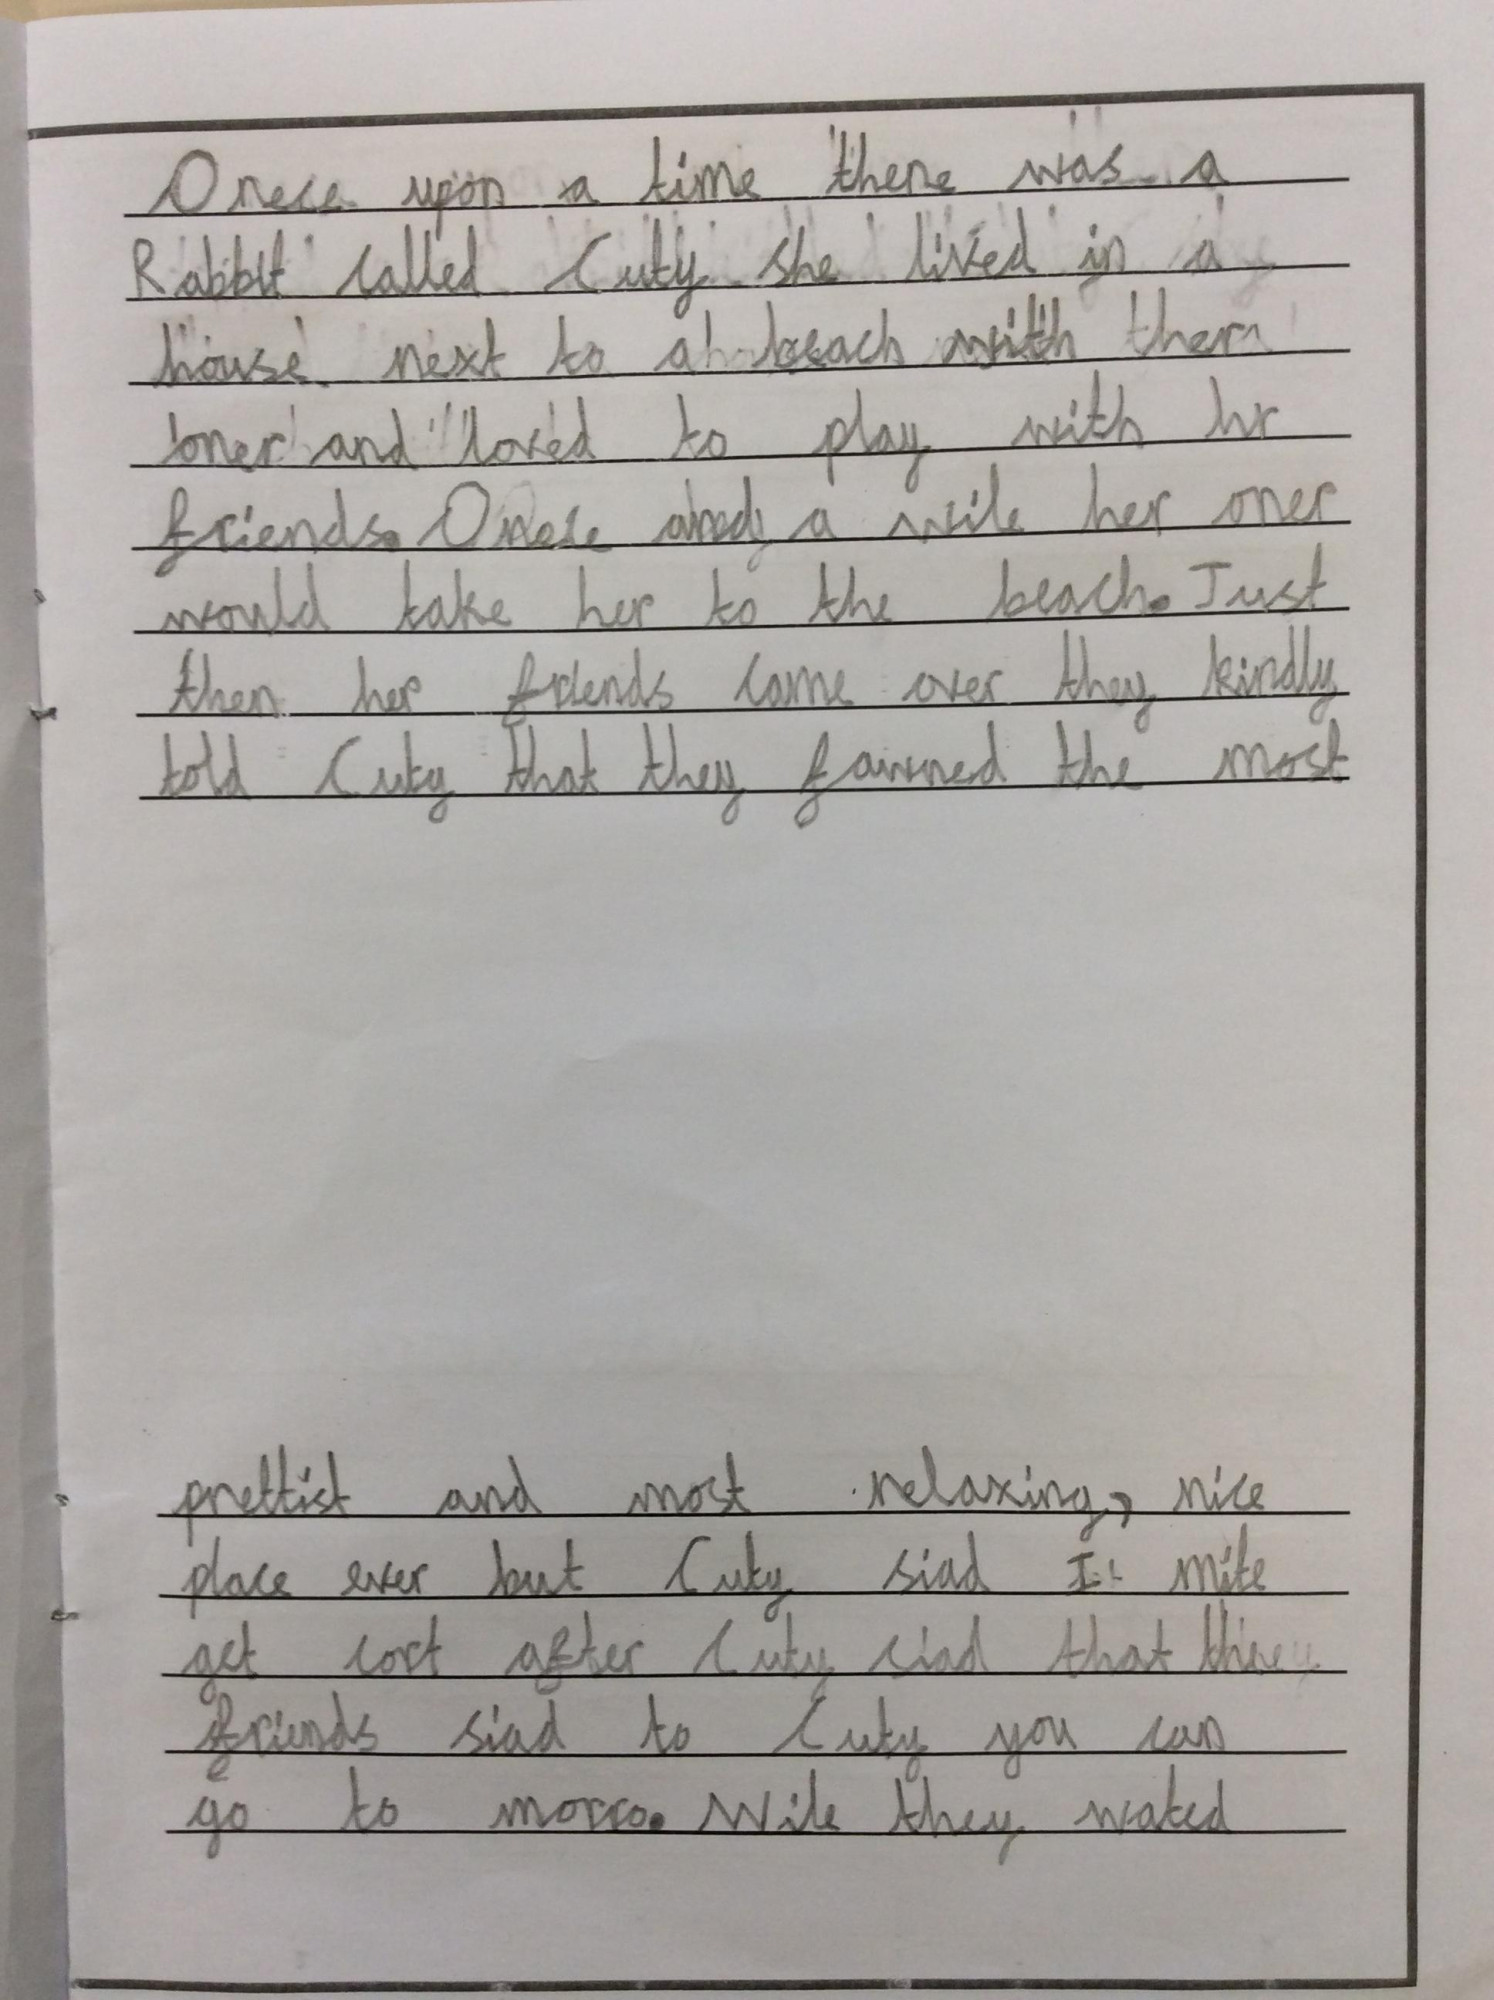 Onece upon a time there was a
Rabbit called Cuty she lived in a
house next to a beach with there
oner and loved to play with hr
friends. Onece and a wile her oner
would take her to the beach. Just
then her friends came over they kindly
told Cuty that they fawned the most
prettist and most relaxing, nice
place ever but Cuty siad I mite
get cort after Cuty siad that they
friends siad to Cuty you can
go to morro. Wile they wated